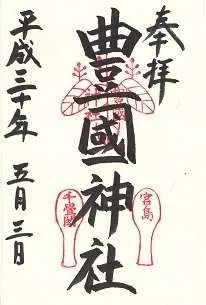 奉拝
豊國神社
平成三十年 五月三日
宮島
千畳閣